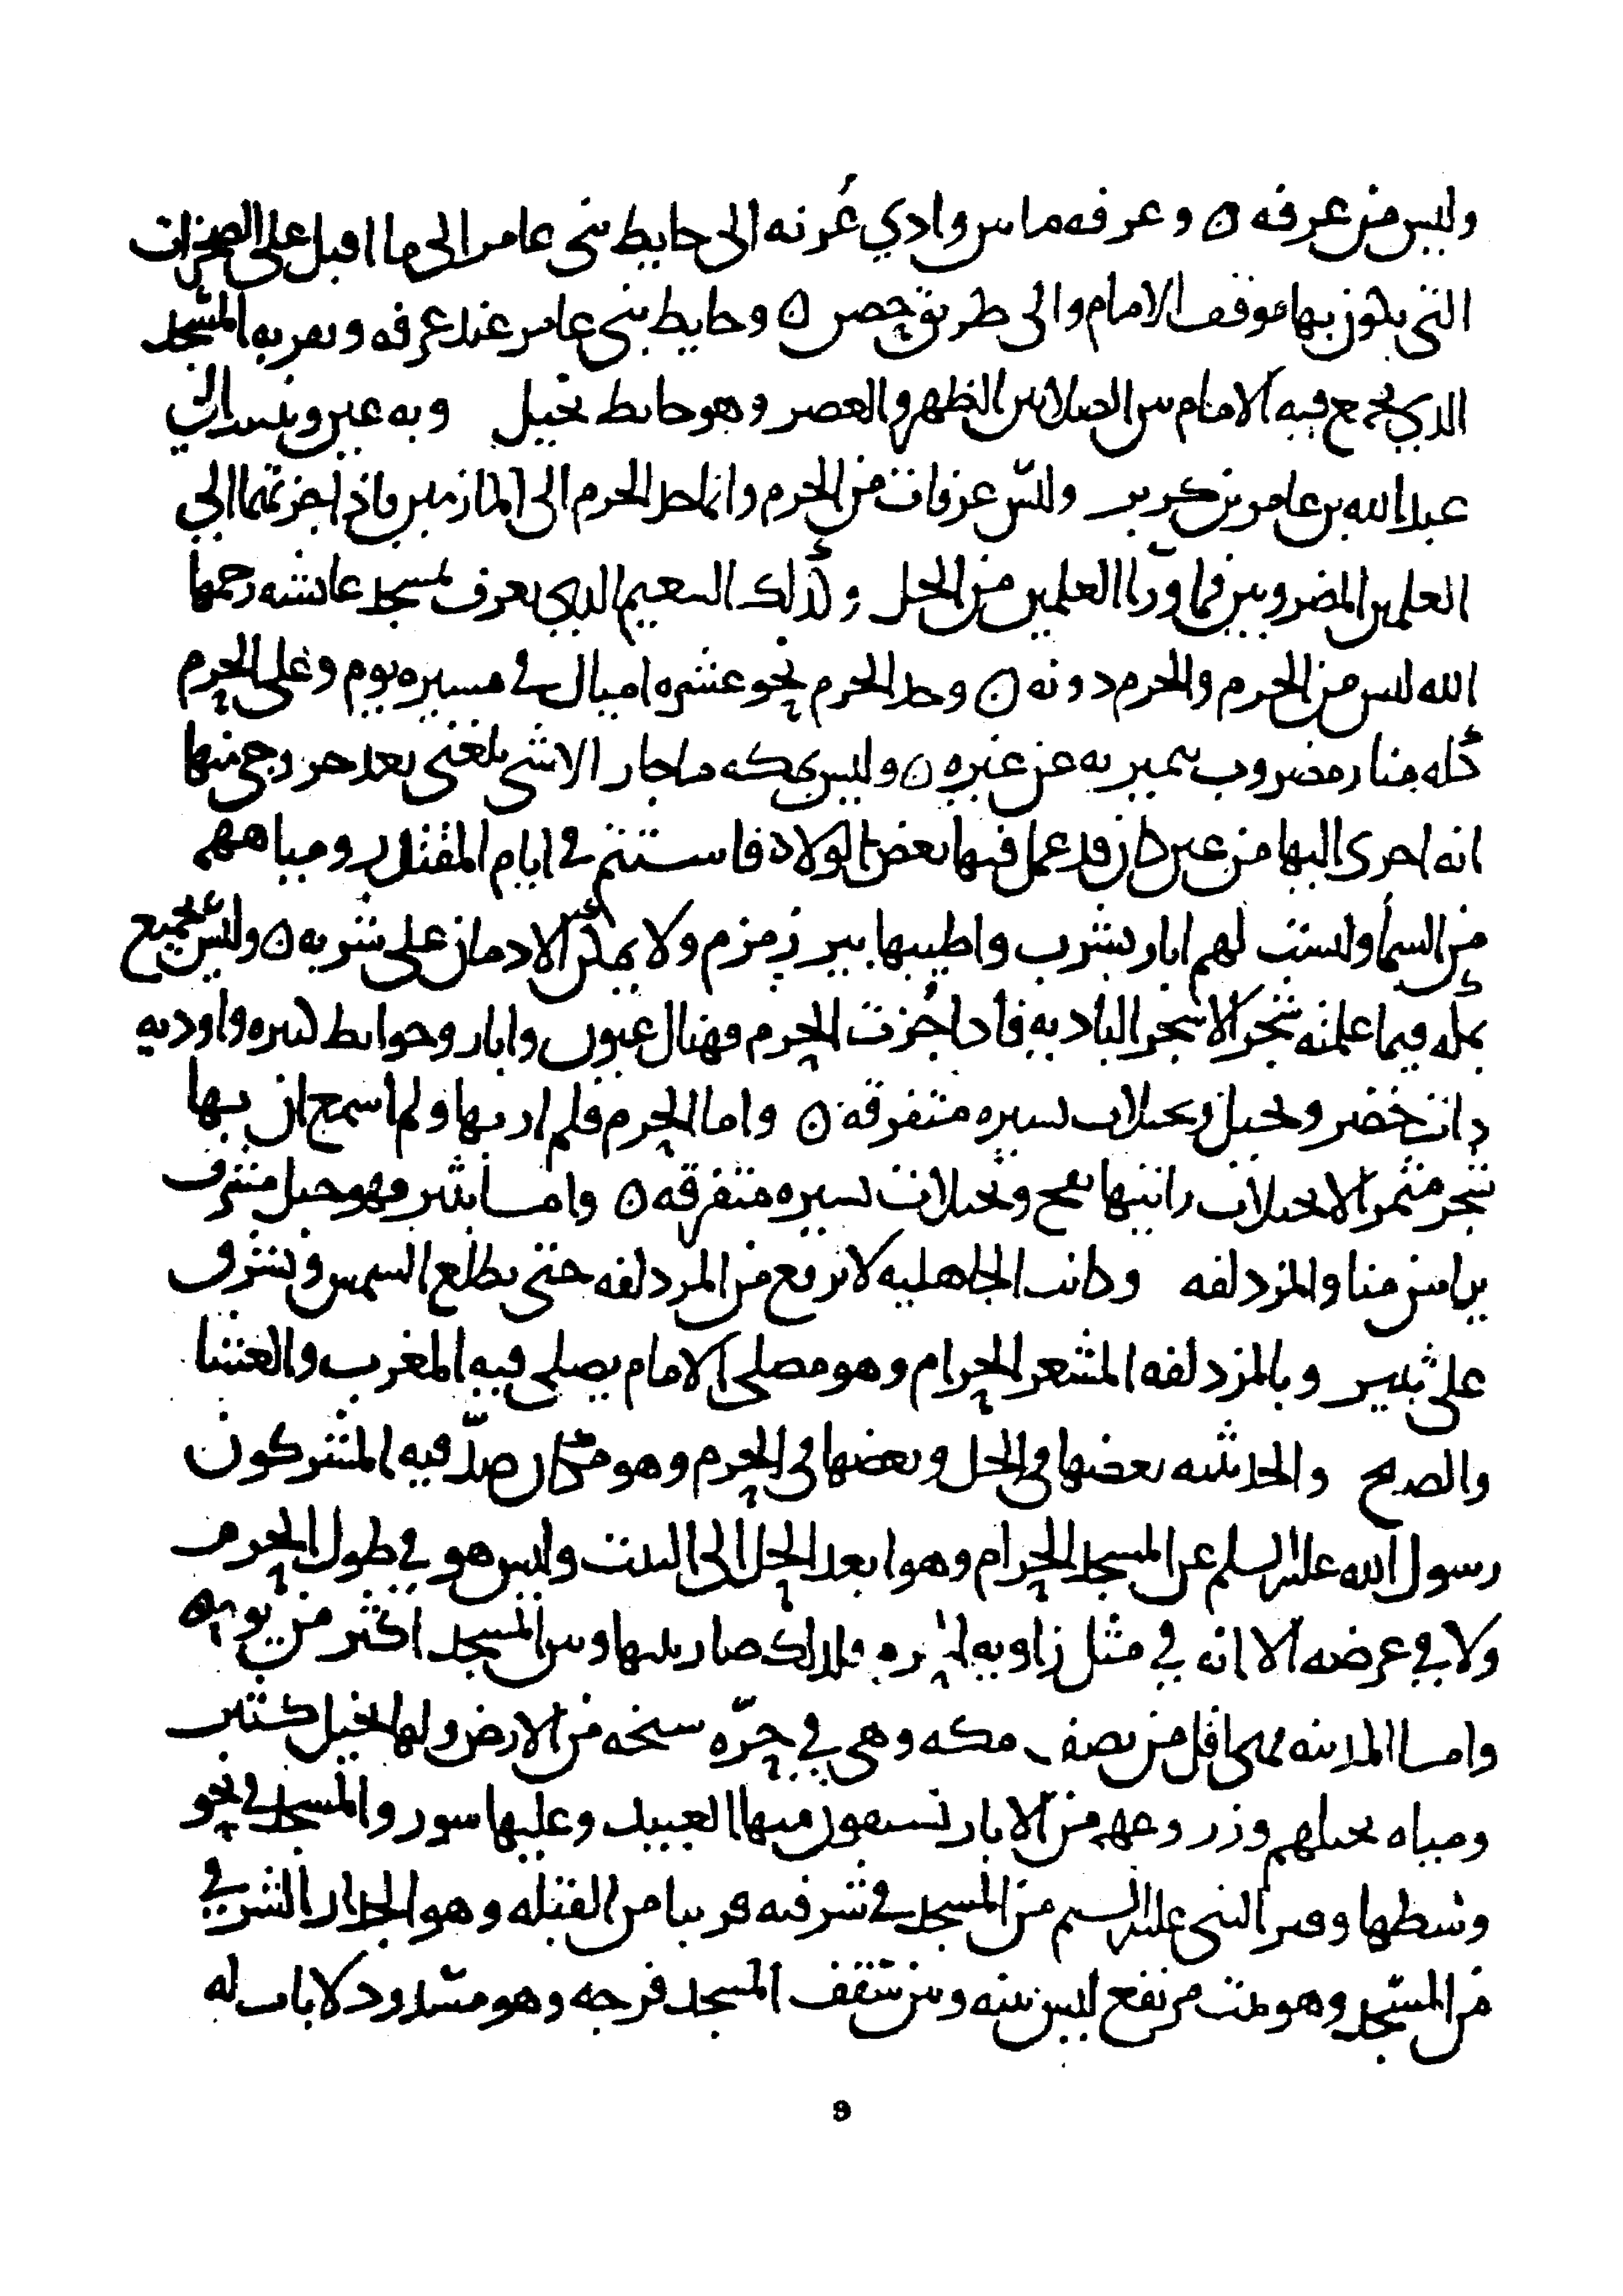 وليس من عرفه ن وعرفه ما بين وادي عُرنه الى حايط بني عامر الى ما اقبل على الصخرات
التي يكون بها موقف الامام والى طريق حصن ن وحايط بني عامر عند عرفه وبقربه المسجد
الذي يجمع فيه الامام بين الصلاتين الظهر والعصر وهو حايط نخيل وبه عين وينسب الى
عبد الله بن عامر بن كريز وليس عرفات من الحرم وانما حد الحرم الى المازمين فاذا جزتهما الى
العلمين المضروبين فما ورآ العلمين من الحل وكذلك التنعيم الذي يعرف بمسجد عايشه رحمها
الله ليس من الحرم والحرم دونه ن وحد الحرم نحو عشره اميال في مسيره يوم وعلى الحرم
كله منار مضروب يتميز به عن غيره ن وليس بمكه ما جار الا شى بلغني بعد خروجي منها
انه اجرى اليها من عين كان قد عمل فيها بعض الولاه فاستتم في ايام المقتدر ومياههم
من السمأ وليست لهم ابار يشرب واطيبها بير زمزم ولا يمكن الادمان على شربه ن وليس بجميع
مكه فيما علمته شجر الا شجر الباديه فاذا جُزت الحرم فهناك عيون وابار وحوايط كثيره واوديه
ذات خضر ونخيل ونخيلات يسيره متفرقه ن واما الحرم فلم ار بها ولم اسمع ان بها
شجر مثمر الا نخيلات رايتها بفخ ونخيلات يسيره متفرقه ن واما ثبير فهو جبل مشرف
يرا من منا والمزدلفه وكانت الجاهليه لا ترفع من المزدلفه حتى يطلع الشمس وتشرق
على ثبير وبالمزدلفه المشعر الحرام وهو مصلى الامام يصلي فيه المغرب والعشا
والصبح والحديبيه بعضها في الحل وبعضها في الحرم وهو مكان صدّ فيه المشركون
رسول الله عليه السلم عن المسجد الحرام وهو ابعد الحل الى البيت وليس هو في طول الحرم
ولا في عرضه الا انه في مثل زاويه للحرم فلذلك صار بينها وبين المسجد اكثر من يوم ن
واما المدينه فهى اقل من نصف مكه وهي في حرّه سبخه من الارض ولها نخيل كثير
ومياه نخيلهم وزروعهم من الابار يستقون منها العبيد وعليها سور والمسجد في نحو
وسطها وقبر النبي عليه السلم من المسجد في شرقيه قريبا من القبله وهو الجدار الشرقي
من المسجد وهو بيت مرتفع ليس بينه وبين سقف المسجد فرجه وهو مسدود لا باب له
9